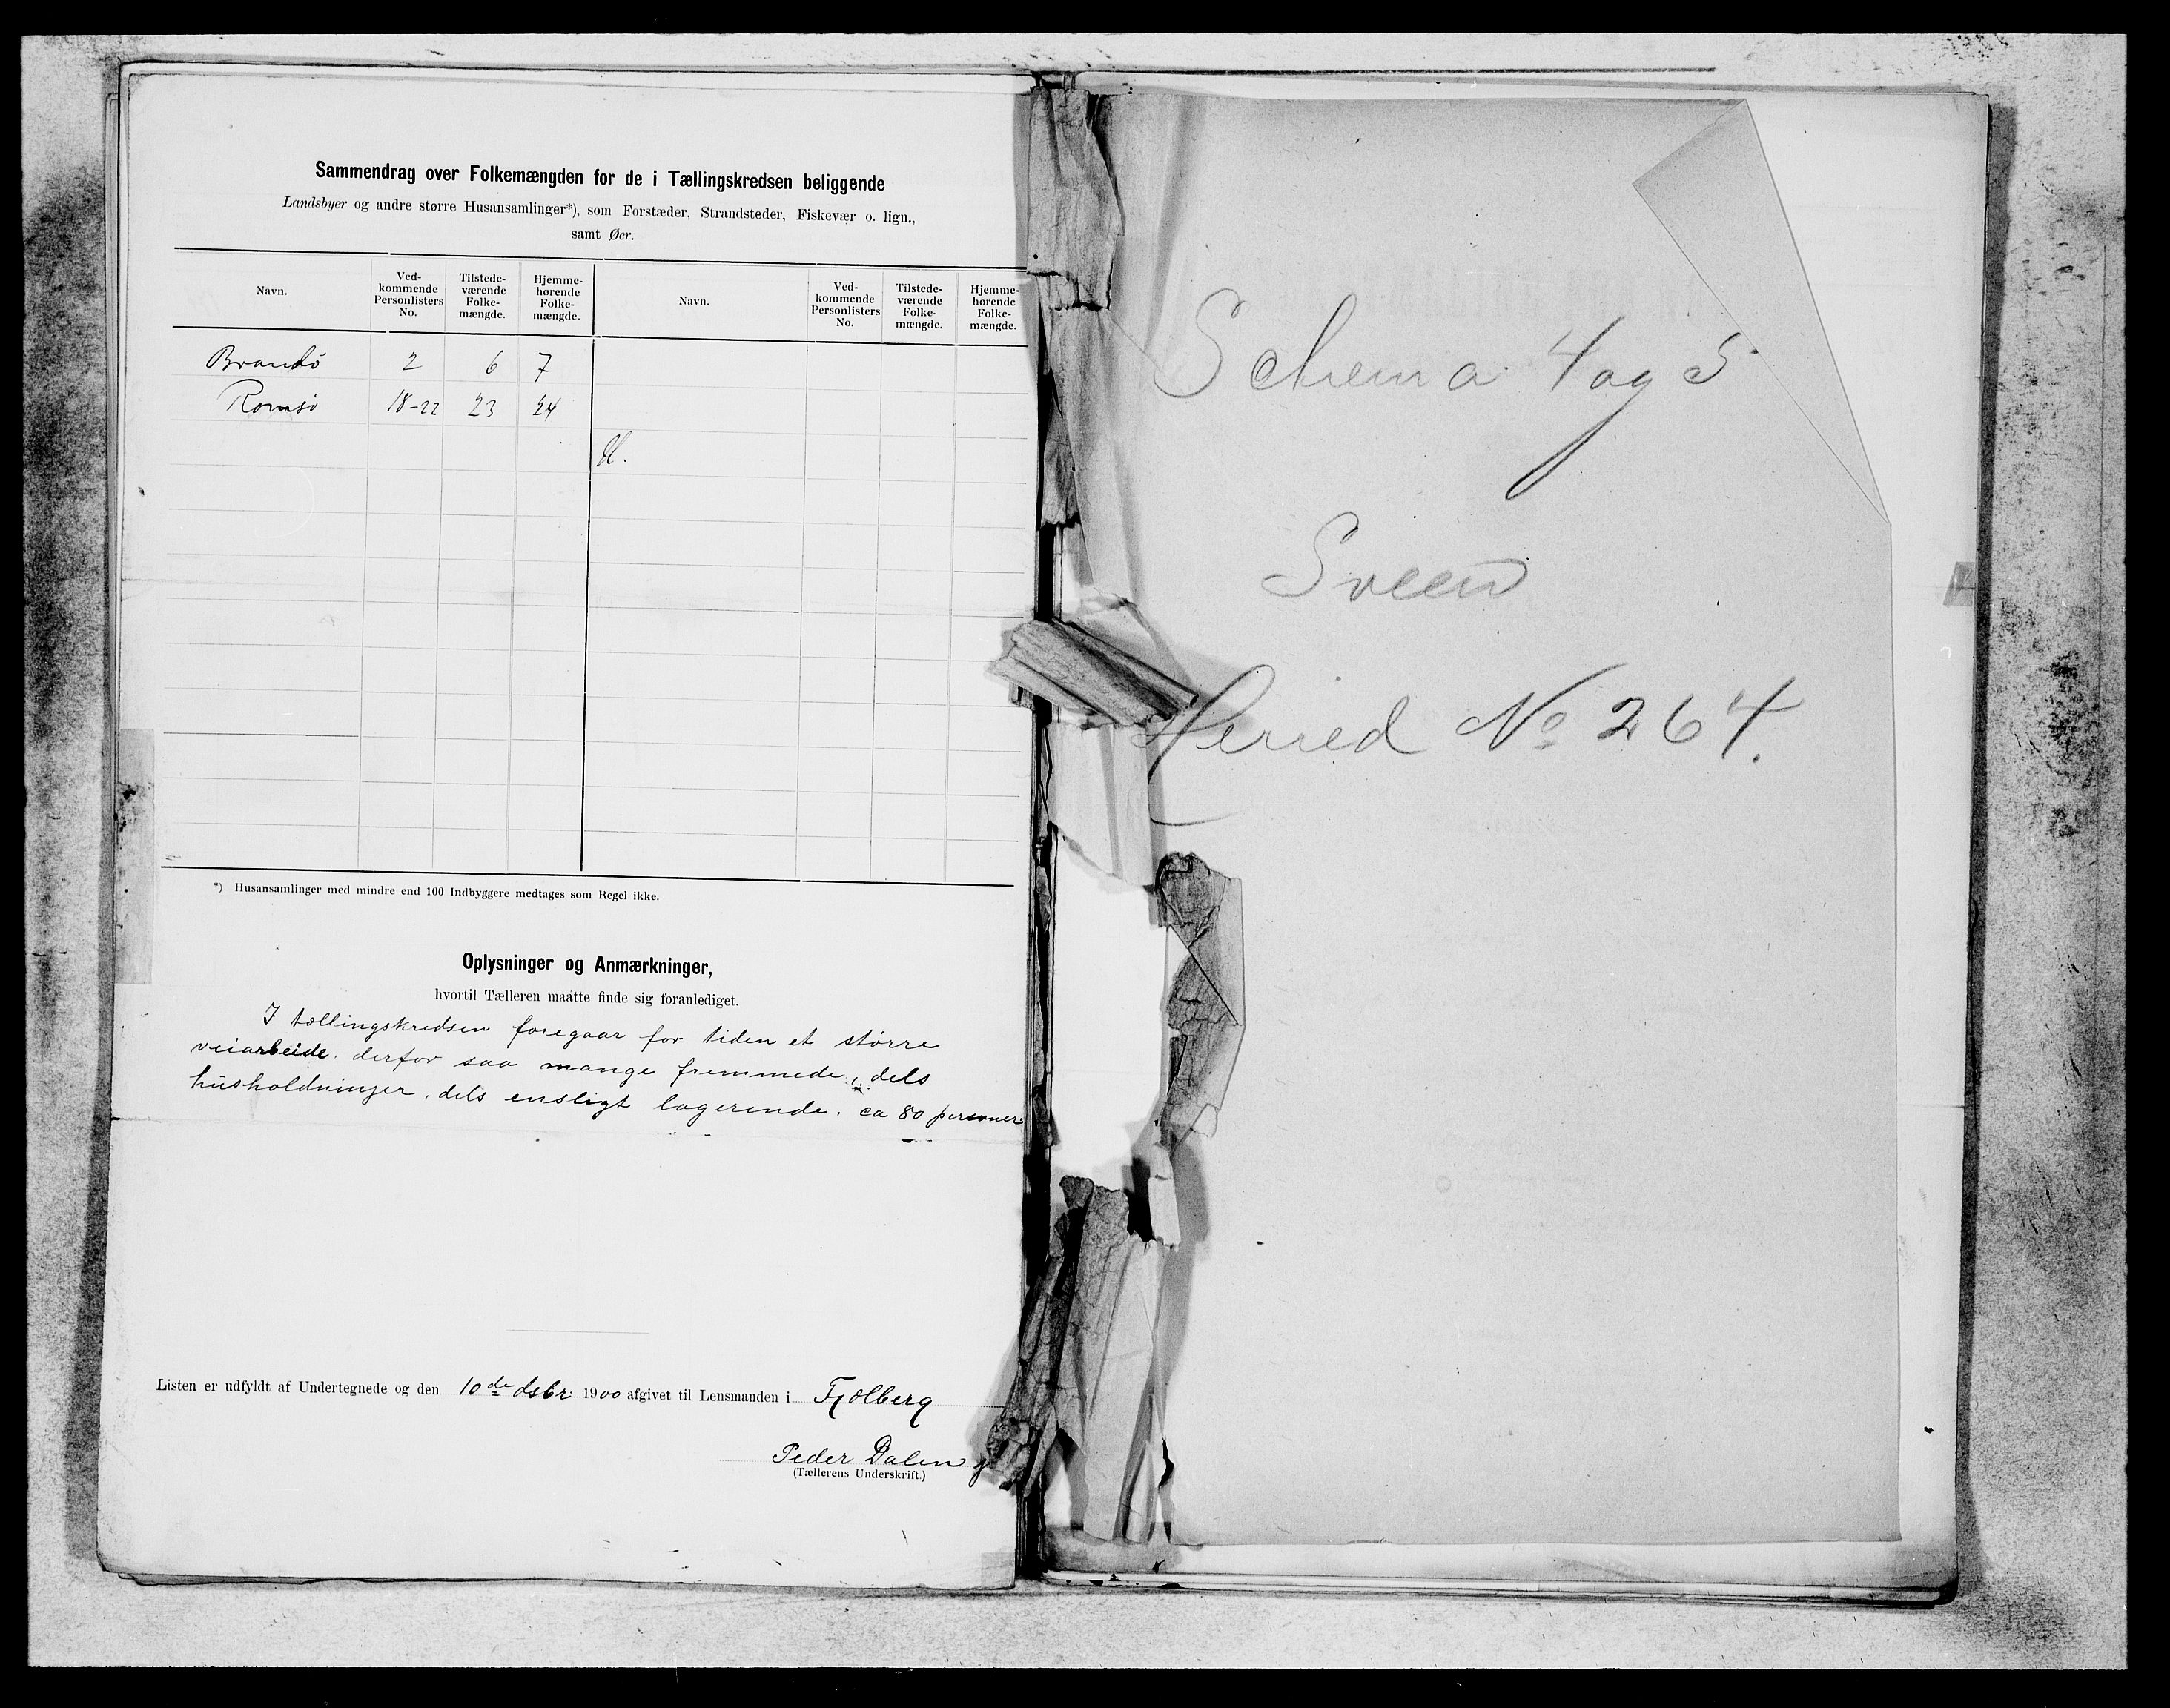 Sammendrag over Folkemængden for de i Tællingskredsen beliggende
Landsbyer og andre større Husansamlinger*), som Forstæder, Strandsteder, Fiskevær o. lign.,
samt Øer.
Navn. Ved-kommende Personlisters No. Tilstede-værende Folke-mængde. Hjemme-hørende Folke-mængde. Navn. Ved-kommende Personlisters No. Tilstede-værende Folke-mængde. Hjemme-hørende Folke-mængde.
Brandø 2 6 7
Romsø 18-22 23 24
*) Husansamlinger med mindre end 100 Indbyggere medtages som Regel ikke.
Oplysninger og Anmærkninger,
hvortil Tælleren maatte finde sig foranlediget.
I tællingskredsen foregaar for tiden et større
veiarbeide, derfor saa mange fremmede, dels
husholdninger, dels ensligt logerende, ca 80 personer
Listen er udfyldt af Undertegnede og den 10de dsbr 1900 afgivet til Lensmanden i Fjelberg
Peder Dalen
(Tællerens Underskrift.)
Schema 4 og 5
Sveen
Herred No 264.